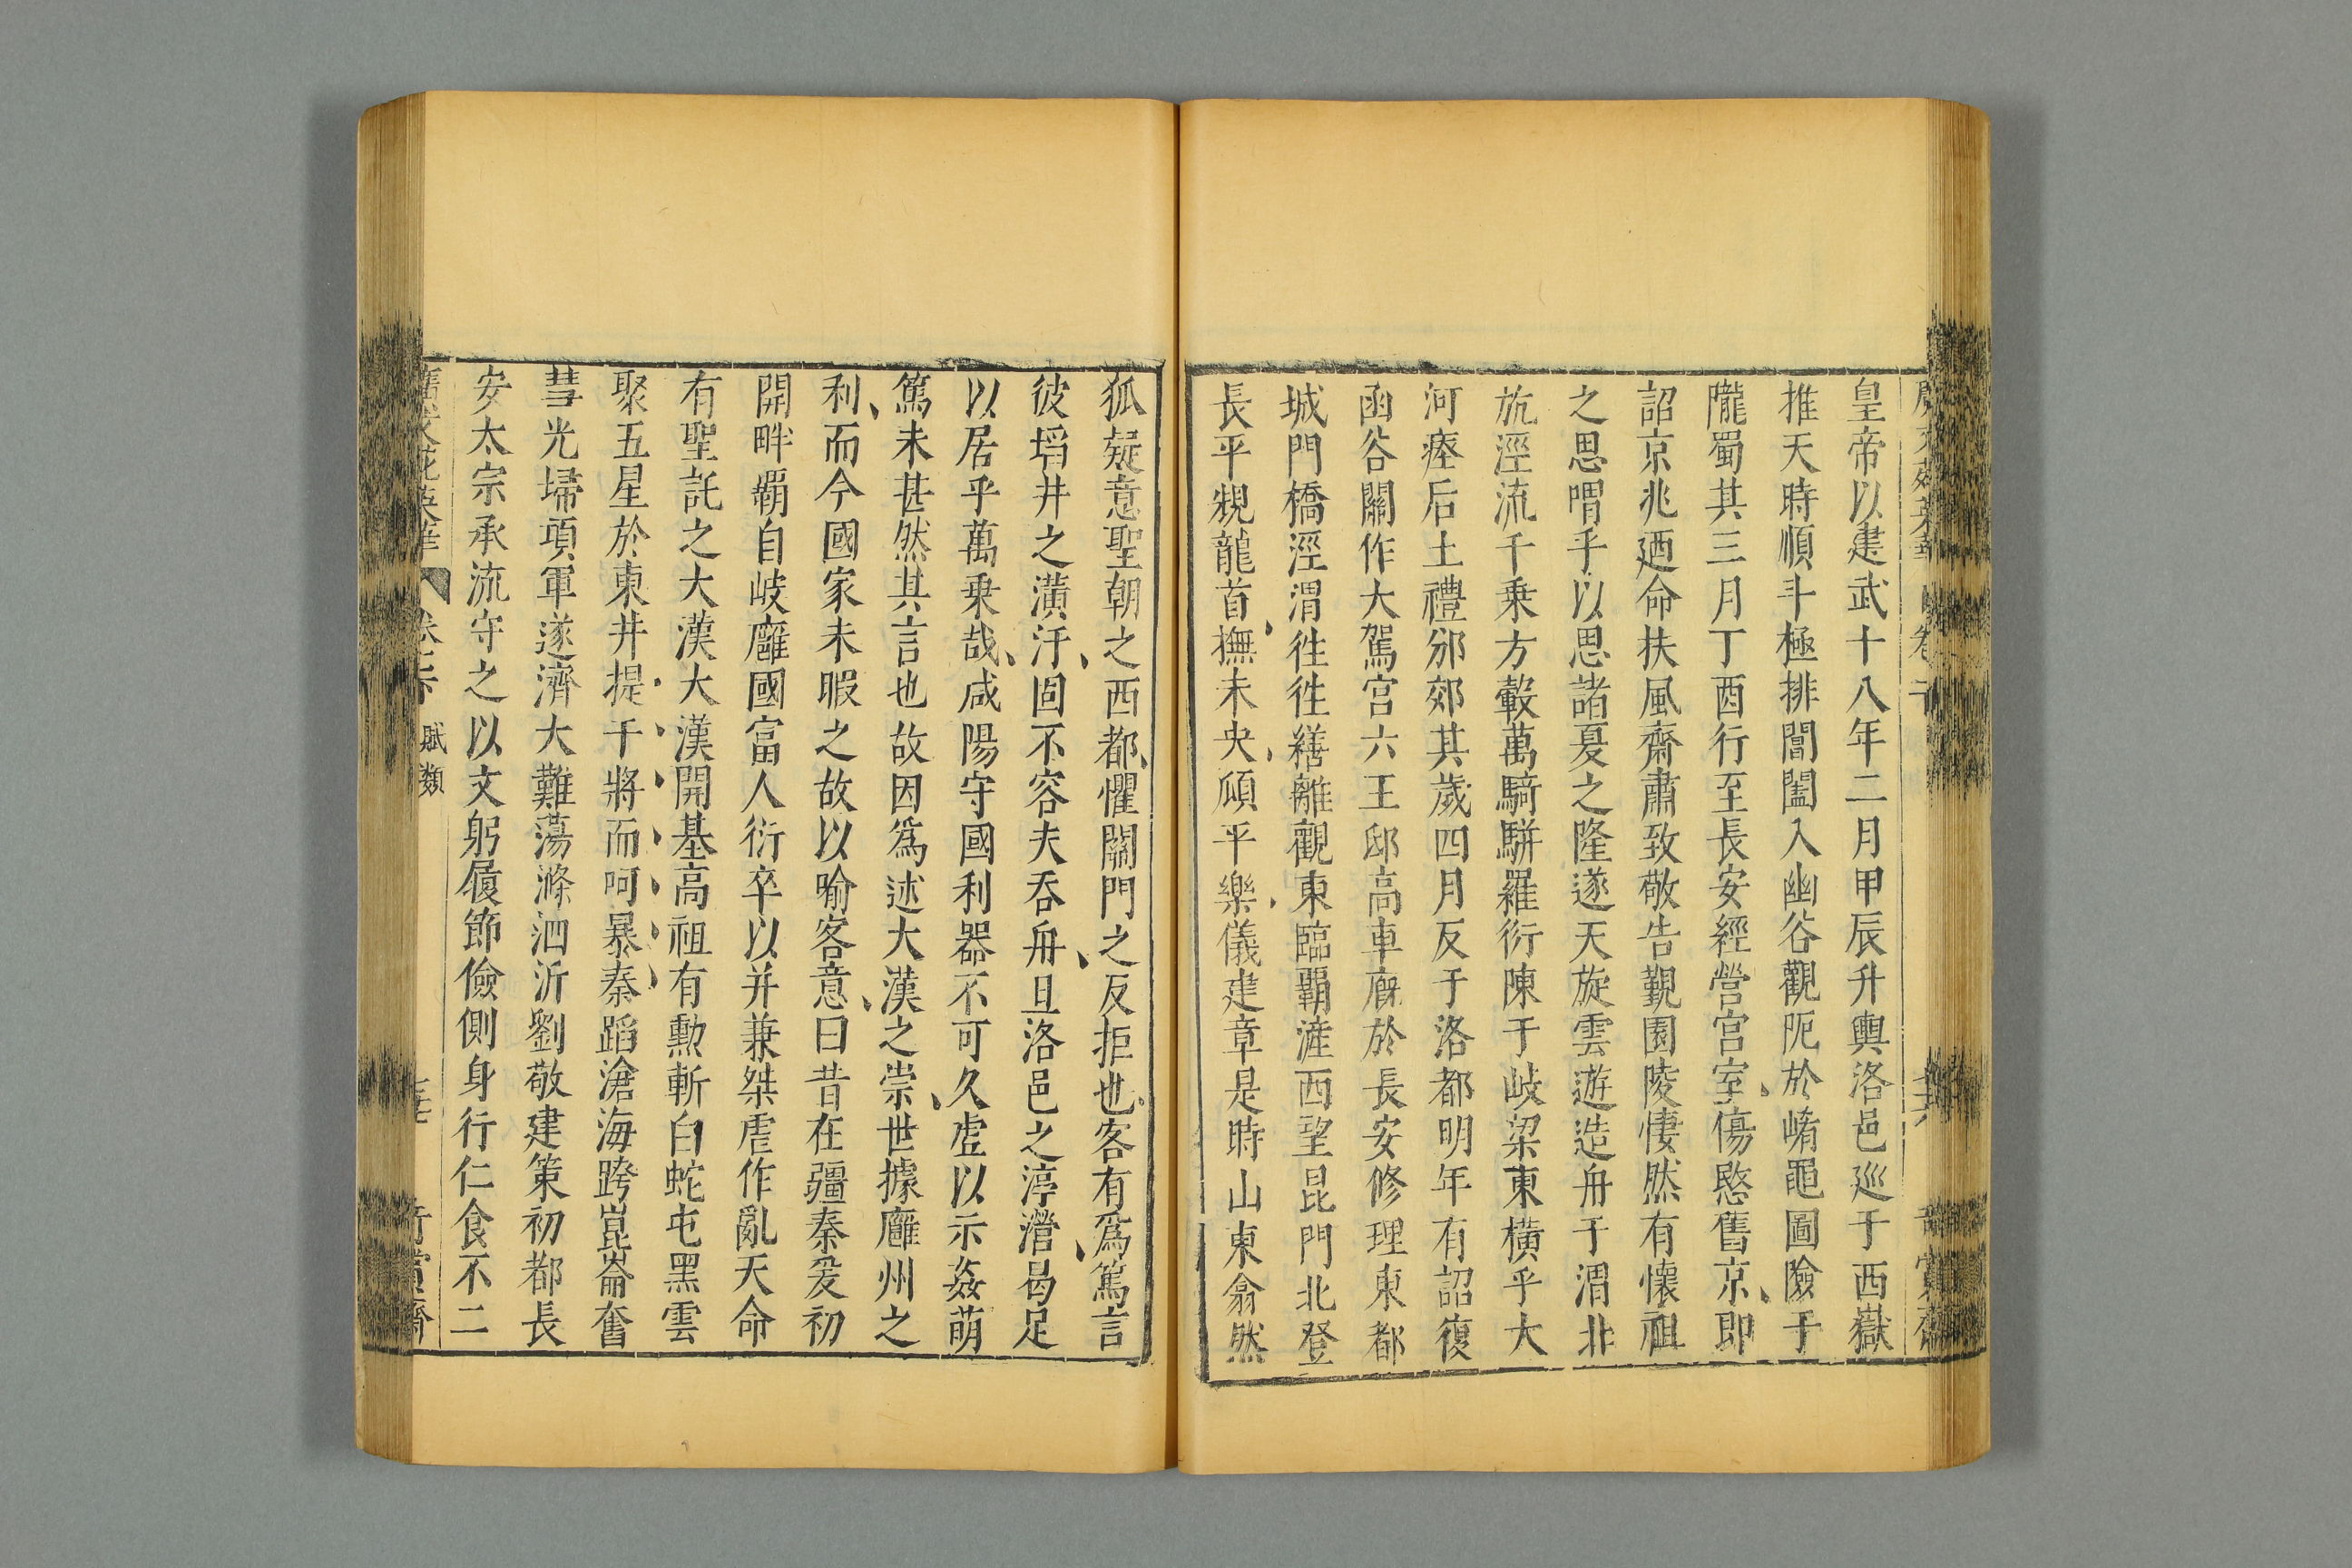 皇帝以建武十八年二月甲辰升輿洛邑巡于西嶽
推天時順斗極排閶闔入幽谷觀阨於崤黽圖險于
隴蜀其三月丁酉行至長安經營宮室傷愍舊京即
詔京兆廼命扶風齋肅致敬告覲園陵悽然有懷祖
之思喟乎以思諸夏之隆遂天旋雲遊造舟于渭北
斻涇流千乗方轂萬騎駢羅衍陳于岐梁東橫乎大
河瘞后土禮邠郊其歲四月反于洛都明年有詔復
函谷關作大駕宮六王邸高車廐於長安修理東都
城門橋涇渭徃徃繕離觀東臨覇滻西望昆門北登
長平規龍首撫未央頎平樂儀建章是時山東翕然
狐疑意聖朝之西都懼關門之反拒也客有爲篤言
彼埳井之潢汙固不容夫吞舟且洛邑之渟瀯曷足
以居乎萬乗哉咸陽守國利器不可久虚以示姦萌
篤未甚然其言也故因爲述大漢之崇世據廱州之
利而今國家未暇之故以喻客意曰昔在疆秦爰初
開畔覇自岐廱國富人衍卒以并兼桀虐作亂天命
有聖託之大漢大漢開基高祖有勲斬白蛇屯黑雲
聚五星於東井提干將而呵暴秦蹈滄海跨崑崙奮
彗光埽項軍遂濟大難蕩滌泗沂劉敬建策初都長
安太宗承流守之以文躬履節儉側身行仁食不二
賦類